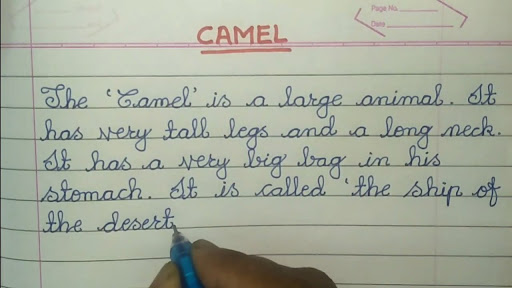 Page No.
Date
CAMEL
The 'Camel' is a large animal. It
has very tall legs and a long neck.
It has a very big bag in his
stomach. It is called 'the ship of
the desert